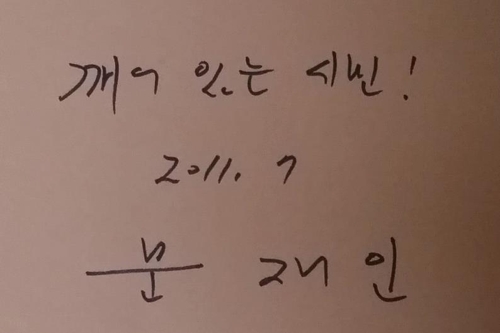 깨어 있는 시민!
2011. 7
문 재인